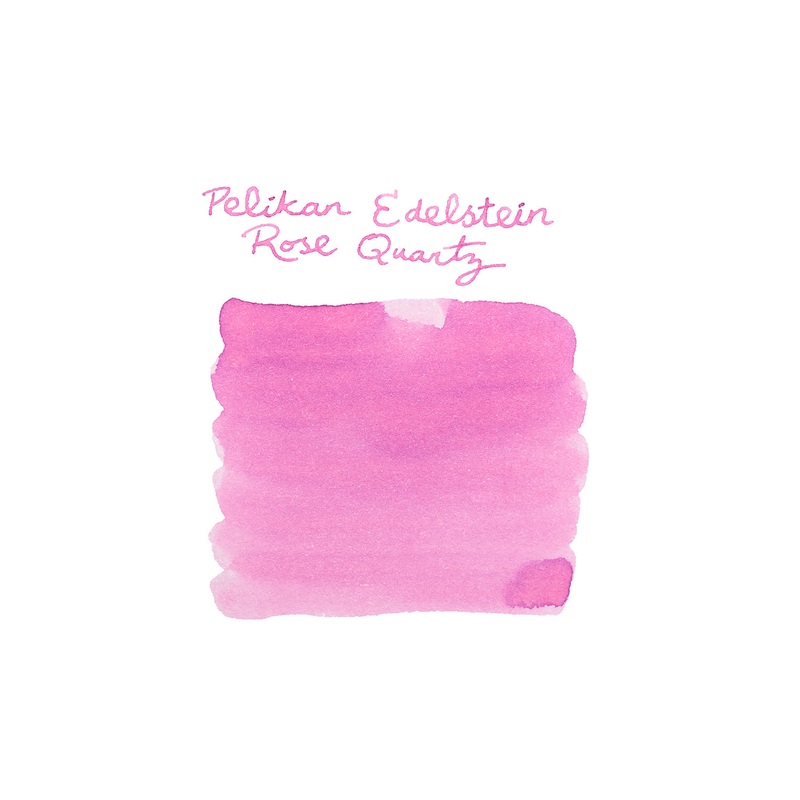 Pelikan Edelstein
Rose Quartz